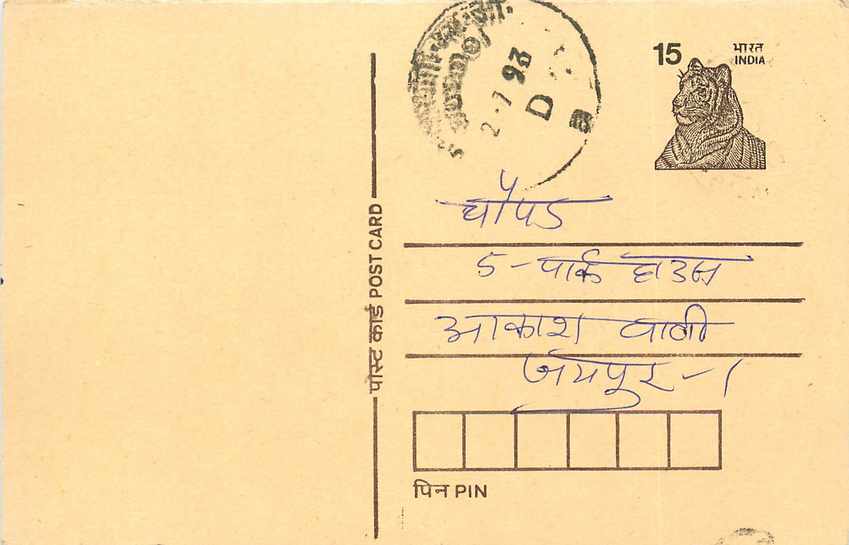 15 भारत
INDIA
2-7 93
D
चौपड
5-पार्क हाउस
आकाश वाणी
जयपुर-1
पोस्ट कार्ड POST CARD
पिन PIN